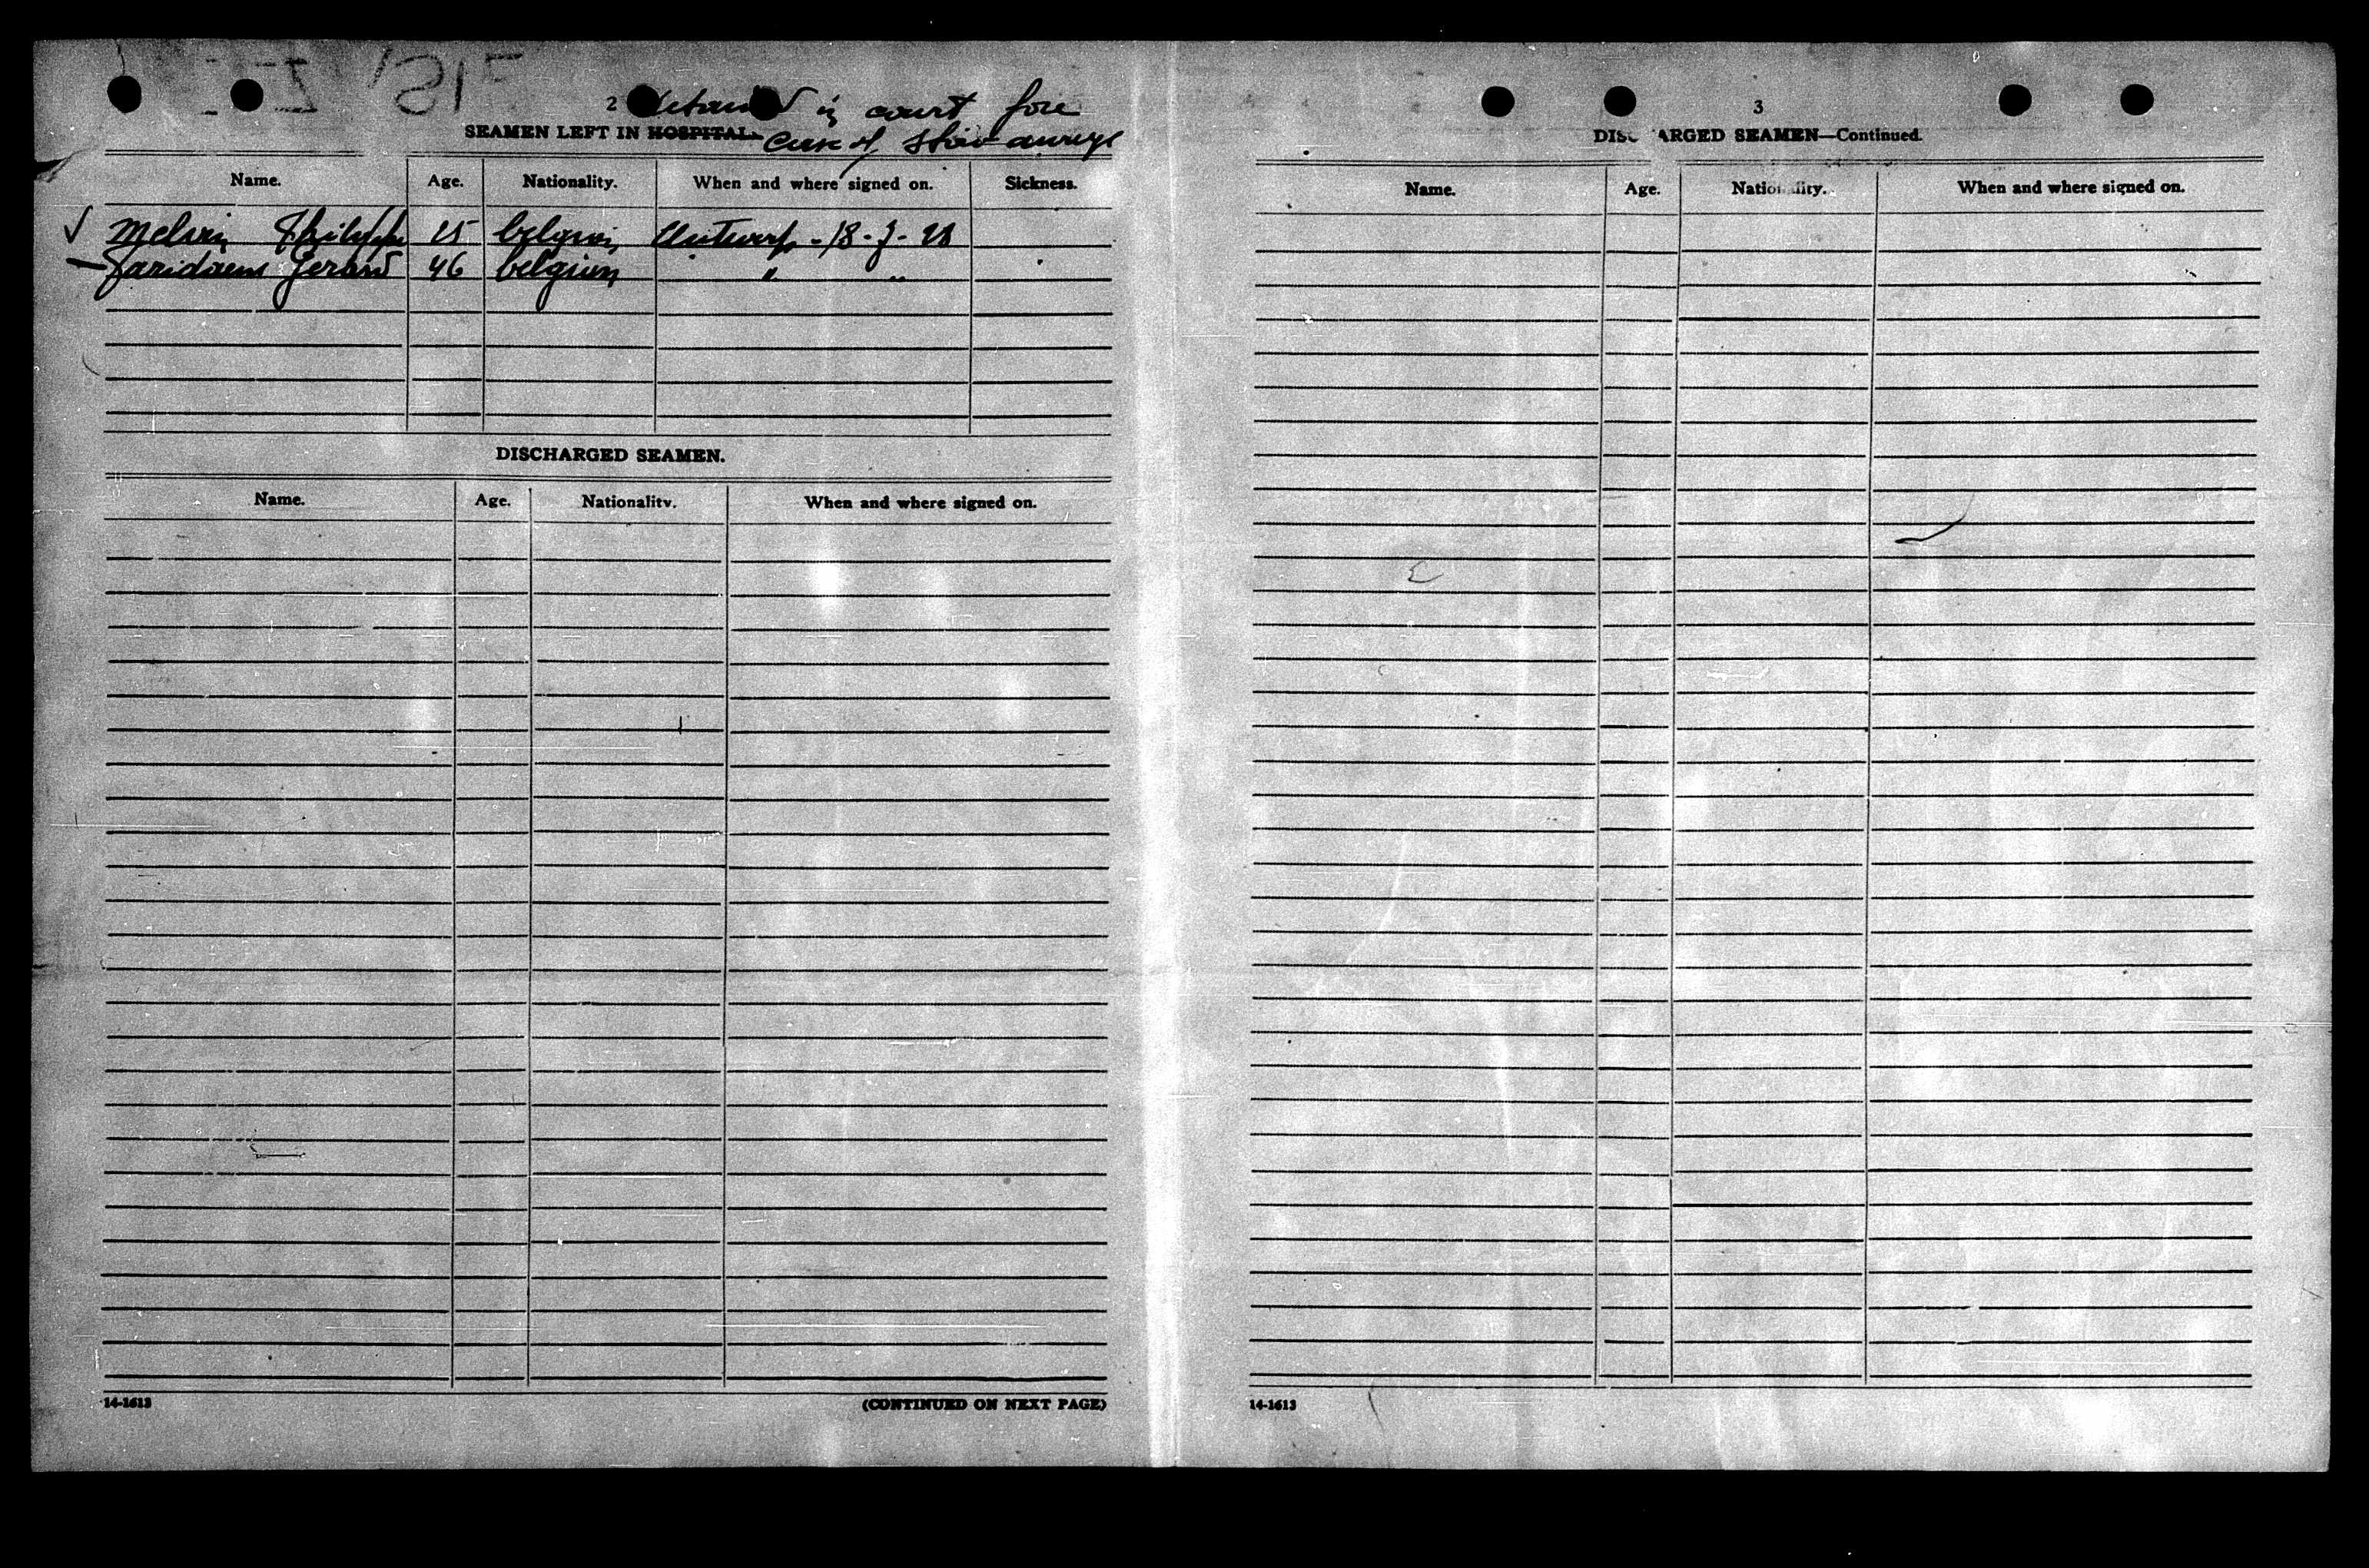 2
in court fore
SEAMEN LEFT IN HOSPITAL.
case of
Name. Age. Nationality. When and where signed on. Sickness.
Melvin Philippe 25 belgium Antwerp - 18 - 7 - 28
Gerard 46 belgium " "
DISCHARGED SEAMEN.
Name. Age. Nationality. When and where signed on.
14-1613 (CONTINUED ON NEXT PAGE)
3
DISCHARGED SEAMEN—Continued.
Name. Age. Nationality. When and where signed on.
14-1613